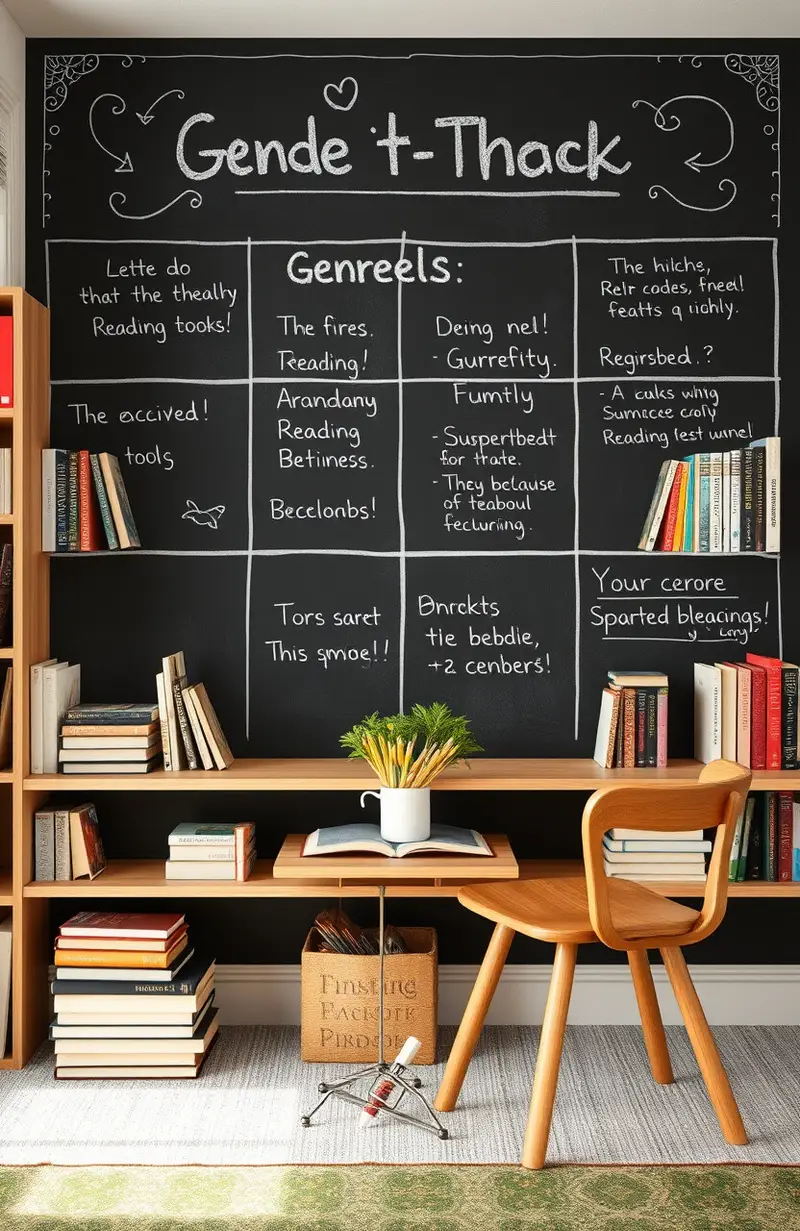 Gende t-Thack
Genreels:
Lette do
that the theally
Reading tooks!
The fires.
Teeading!
Deing nel!
- Gurrefity.
The hilche,
Relr codes, fneel
featts q ichly.
Regirsbed.?
The occived!
tools
Arandany
Reading
Betiiness.
Becclonbs!
Fumtly
- Suspertbedt
for trate.
- They beciause
of teaboul
fecluriing.
- A cuks whiy
Sumracce cofy
Reading fest wune!
Tors saret
This qmoe!!
Dnrckts
tie bebdie,
+2 cenbers!
Your cerore
Sparted bleacings!
Finsting
Packotk